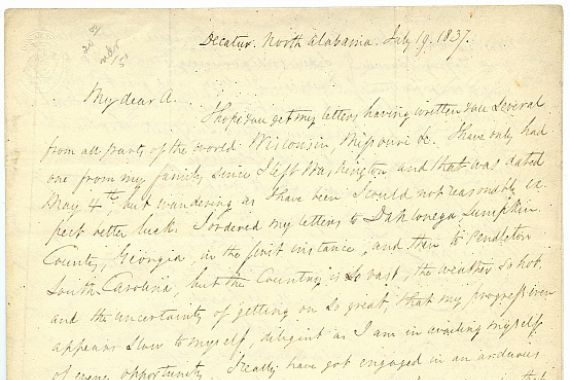 Decatur. North Alabama. July 19. 1837.
My dear A.
I hope you get my letters having written you several
from all parts of the world. Wisconsin, Missouri &c. I have only had
one from my family since I left Washington, and that was dated
May 4th, but wandering as I have been I could not reasonably ex-
pect better luck. I ordered my letters to Dahlonega, Lumpkin
County, Georgia, in the first instance, and then to Pendleton
South Carolina, but the Country is so vast, the weather so hot,
and the uncertainty of getting on so great, that my progress even
appears slow to myself, diligent as I am in availing myself
of every opportunity. I really have got engaged in an arduous